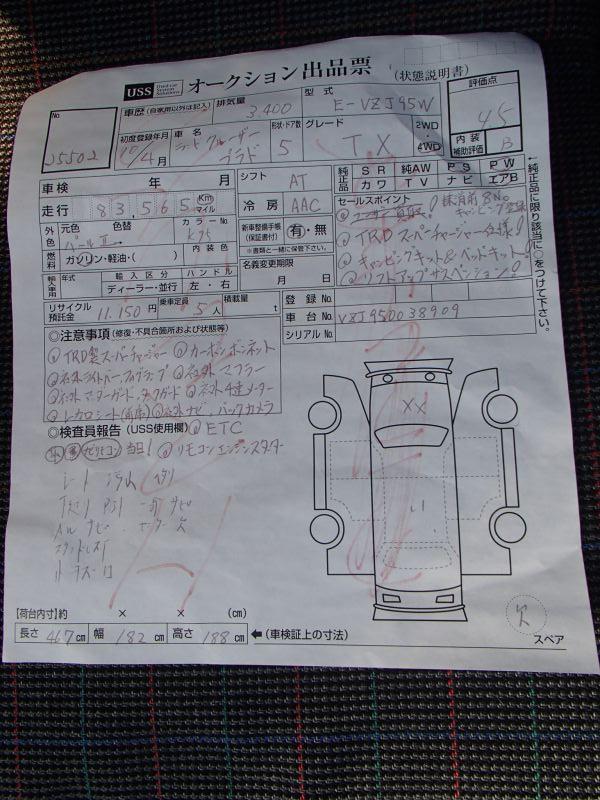 USS Used car System Solutions オークション出品票 (状態説明書)
No.
25502
車歴 (自家用以外は記入) 排気量 3,400 型式 E-VZJ95W 評価点 4.5
初度登録年月 10/4月 車名 ランドクルーザー プラド 形状・ドア数 5 グレード TX 2WD 4WD 内装補助評価 B
車検 年 月 シフト AT 純正品 SR 純AW PS PW
カワ TV ナビ エアB
走行 83,565 Km マイル 冷房 AAC
セールスポイント
↑純正品に限り該当に○をつけて下さい。↓
外色 元色 パールⅡ 色替 カラーNo. K75
内装色
新車整備手帳 (保証書付) 有・無
※書類と一緒に保管下さい。
@ ユーザー買取! 採用前8No.キャンピング登録
@ TRDスーパーチャージャー仕様!
@ キャンピングキット&ベッドキット!
@ リフトアップサスペンション!
燃料 ガソリン・軽油・( )
名義変更期限 月 日
輸入車用 年式 輸入区分 ディーラー・並行 ハンドル 左・右
リサイクル預託金 11,150 円 乗車定員 5人 積載量 t
登録No.
車台No. VZJ950038909
シリアルNo.
◎注意事項 (修復・不具合箇所および状態等)
@ TRD製スーパーチャージャー @ カーボンボンネット
@ 社外ライトバー、フォグランプ @ 社外マフラー
@ 社外マッドガード @ 社外4連メーター
@ レカロシート(前席) @ 社外ナビ、バックカメラ
◎検査員報告 (USS使用欄) @ ETC
セリコン 当日! @ リモコンエンジンスターター
シート 汚れ
下廻り サビ
XX
欠
スペア
【荷台内寸】約 × × (cm)
長さ 467cm 幅 182cm 高さ 188cm ←(車検証上の寸法)